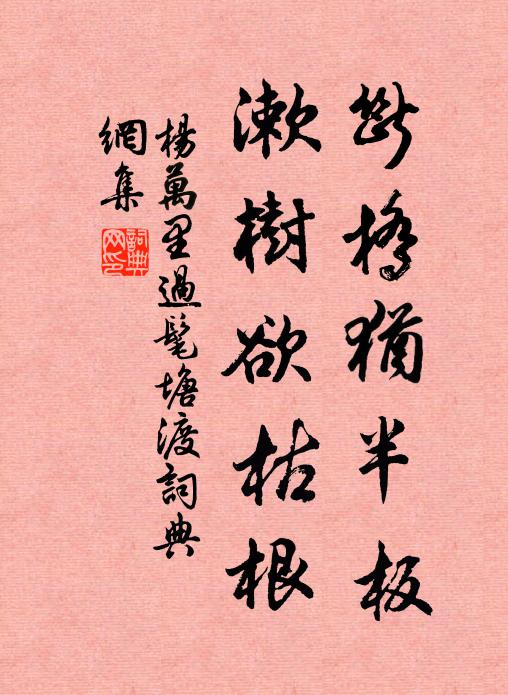 斷橋猶半板
漱樹欲枯根
楊萬里過髦塘渡詞典
網集
詞典網印